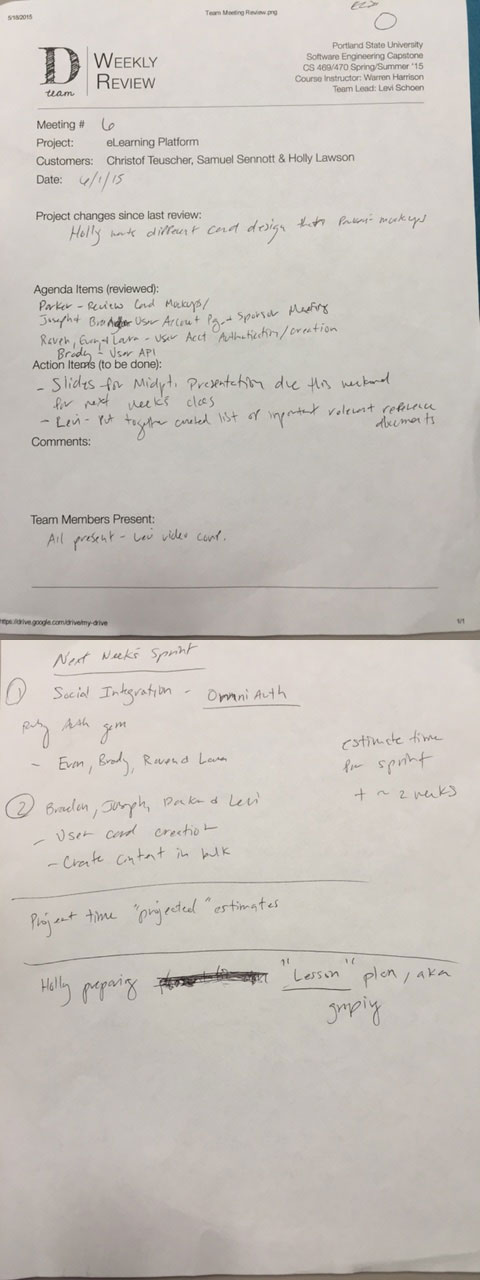 5/18/2015
Team Meeting Review.png
D
team
WEEKLY
REVIEW
Portland State University
Software Engineering Capstone
CS 469/470 Spring/Summer '15
Course Instructor: Warren Harrison
Team Lead: Levi Schoen
Meeting # 6
Project: eLearning Platform
Customers: Christof Teuscher, Samuel Sennott & Holly Lawson
Date: 6/1/15
Project changes since last review:
Holly wants different card design than Parker mockups
Agenda Items (reviewed):
Parker - Review Card Mockups/
Joseph + Braden User Account Pg. + Sponsor Meeting
Raven, Evan & Lara - User Acct Authentication/creation
Brady - User API
Action Items (to be done):
- Slides for Midpt. Presentation due this weekend
for next week's class
- Levi - Put together curated list of important relevant reference
documents
Comments:
Team Members Present:
All present - Levi video conf.
https://drive.google.com/drive/my-drive
1/1
Next Week's Sprint
1 Social Integration - OmniAuth
Ruby Auth gem
- Evan, Brady, Raven & Lara
estimate time
for sprint
+ ~ 2 weeks
2 Braden, Joseph, Parker & Levi
- User card creation
- Create content in bulk
Project time "projected" estimates
Holly preparing "Lesson" plan, aka